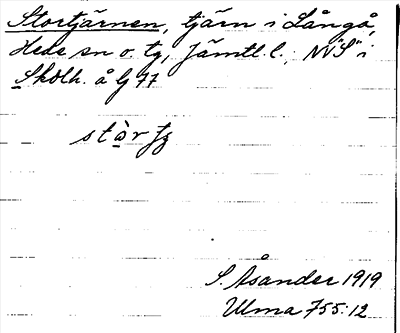 Stortjärnen, tjärn i Långå,
Hede sn o. tg, Jämtl. l.; NV "S" i
Skolh. å Gj 77
stòr
S. Åsander 1919
Ulma 755:12